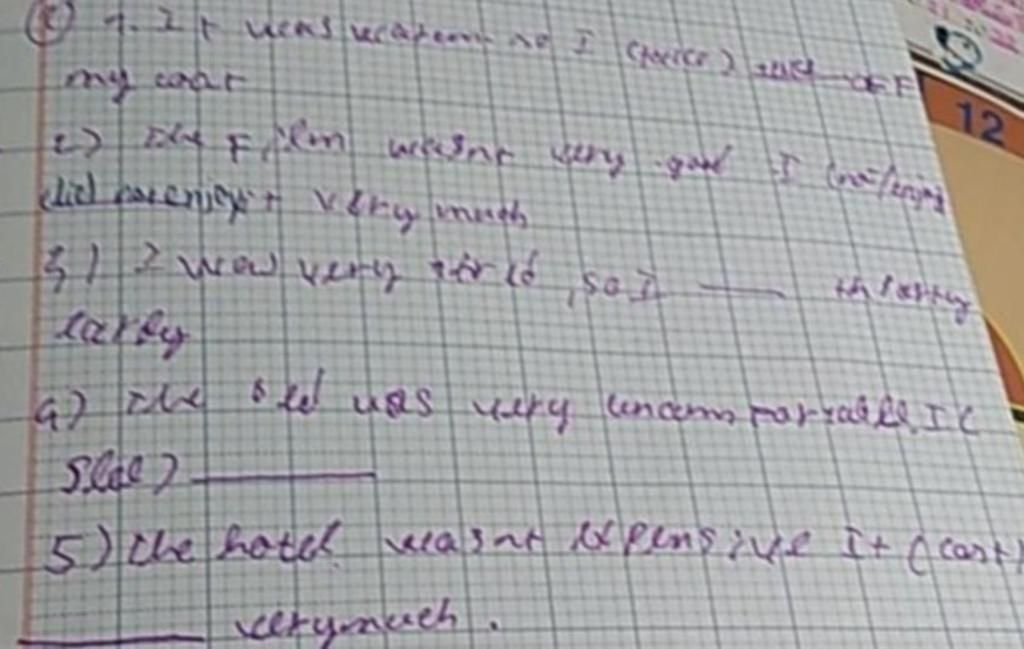 1. It was warm so I (    ) off
my coat
2) the Film wasnt very good I (not/enjoy
did not enjoy it very much
3) I was very tired, so I ____ the party
early
4) the bed was very uncomfortable. I (
sleep) ____
5) the hotel wasnt expensive It (cost)
____ very much.
12